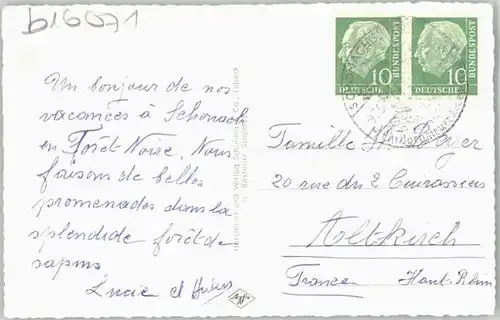 b16071
Un bonjour de nos
vacances à Schonach
en Forêt-Noire. Nous
faisons de belles
promenades dans la
splendide forêt de
sapins
Lucie et
10
DEUTSCHE
BUNDESPOST
10
DEUTSCHE
BUNDESPOST
SCHONACH
Famille
20 rue du 2 Cuirassiers
Altkirch
France Haut-Rhin
Hersteller und Verlag Schöning & Co., Lübeck